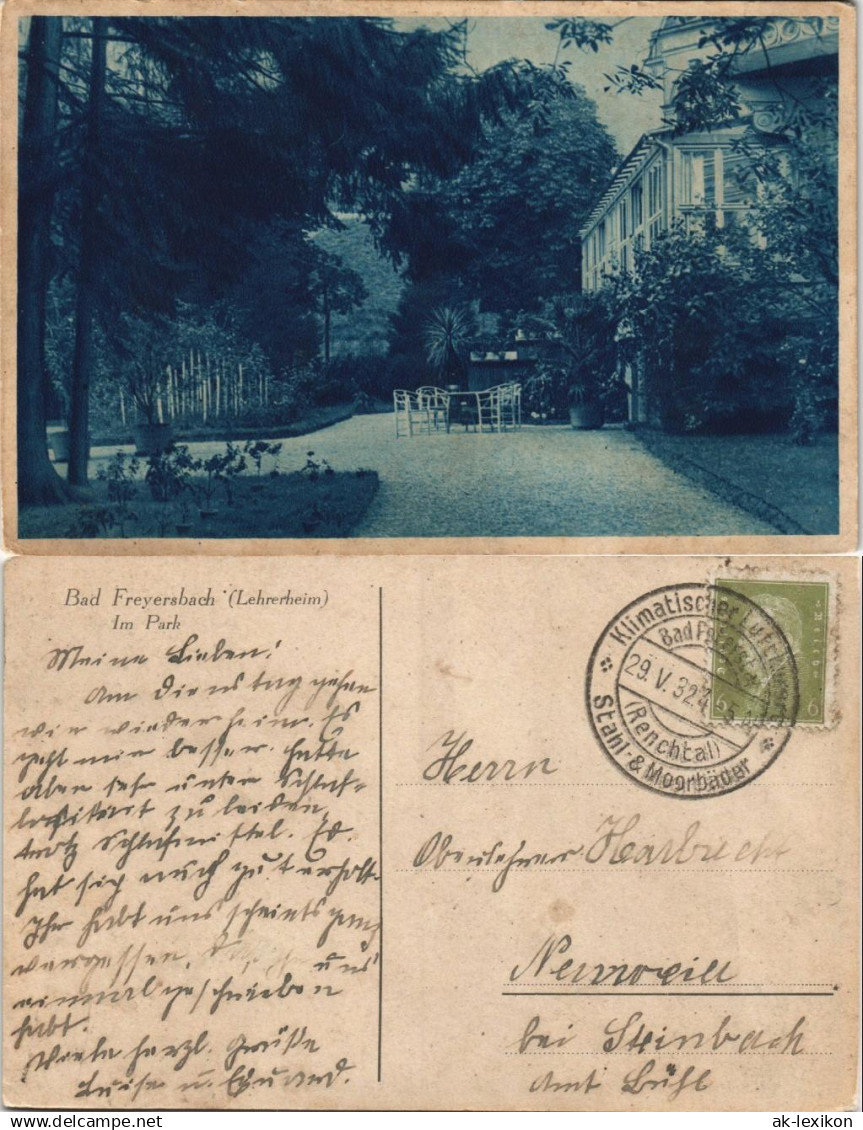 Bad Freyersbach (Lehrerheim)
Im Park
Meine Lieben!
Am Dienstag gehen
wir wieder heim. Es
geht mir besser. Hatte
aber sehr unter Schlaf-
losigkeit zu leiden,
trotz Schlafmittel. Ed.
hat sich auch gut erholt.
Ihr habt uns scheints ganz
vergessen, uns
einmal geschrieben
habt.
Viele herzl. Grüße
Luise u. Eduard.
Klimatischer Luftkurort
Bad
29. V. 32
(Renchtal)
Stahl- & Moorbäder
6 6
Herrn
Oberlehrer Harbrecht
Neuweier
bei Steinbach
Amt Bühl
ak-lexikon